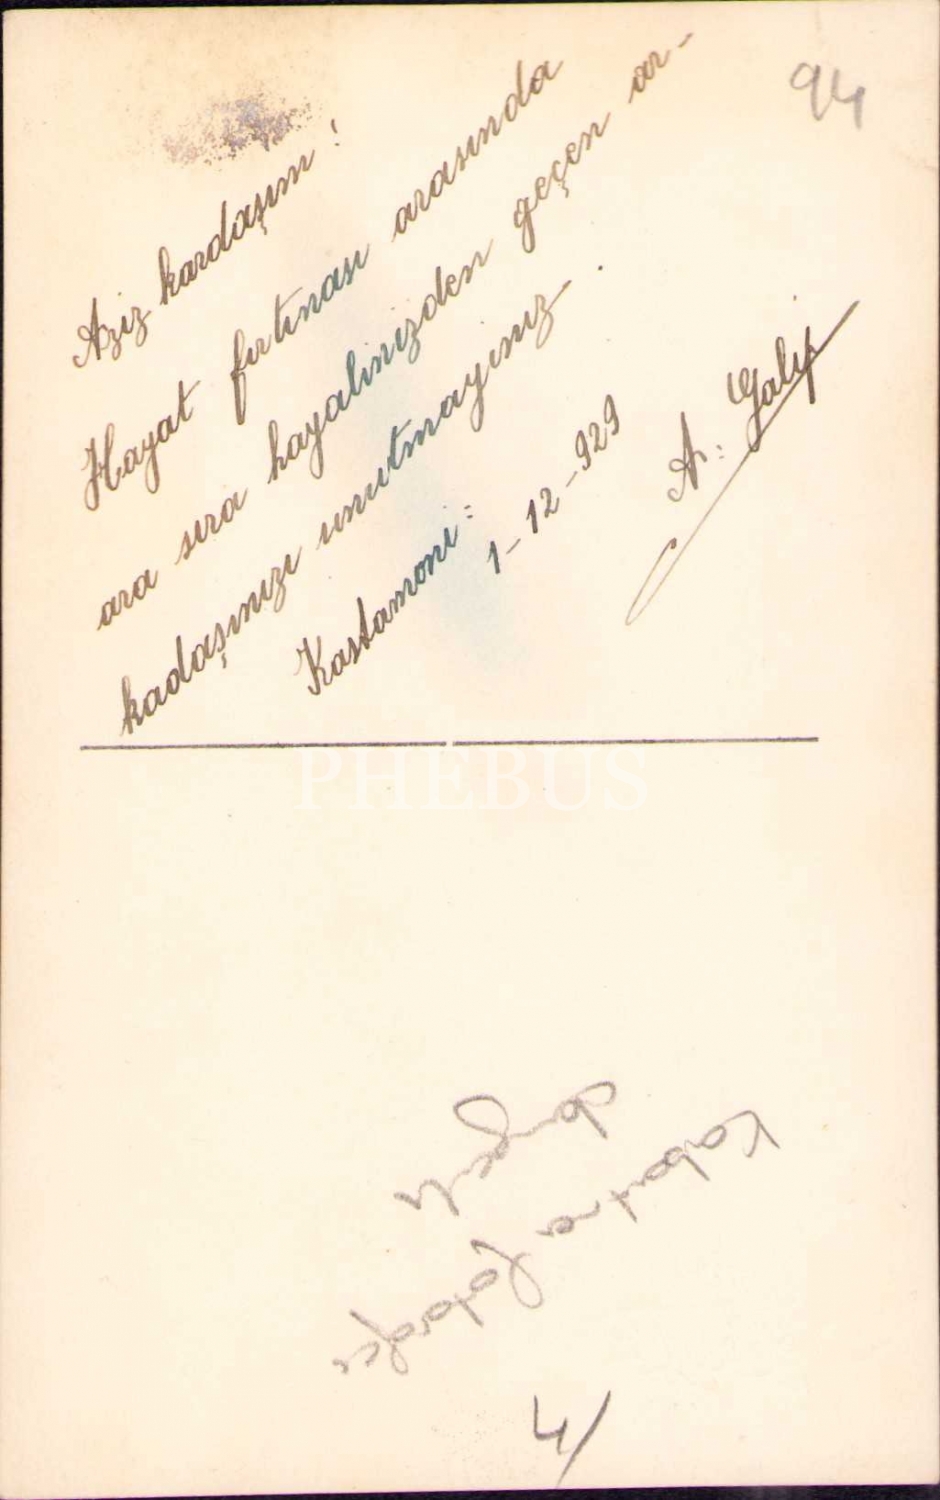 94
Aziz kardaşım!
Hayat fırtınası arasında
ara sıra hayalinizden geçen ar-
kadaşınızı unutmayınız.
Kastamoni:
1-12-929
A: Galip
PHEBUS
Kabartma fotoğraf
4/